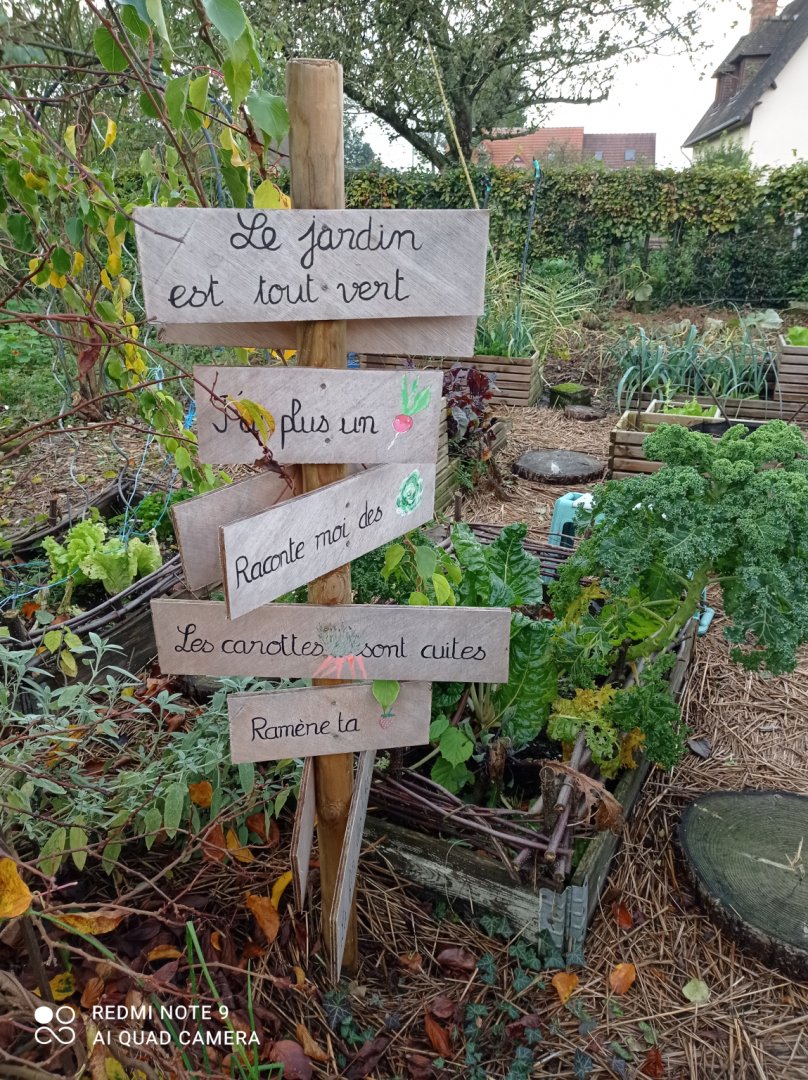 Le jardin
est tout vert
J'ai plus un
Raconte moi des
Les carottes sont cuites
Ramène ta
REDMI NOTE 9
AI QUAD CAMERA